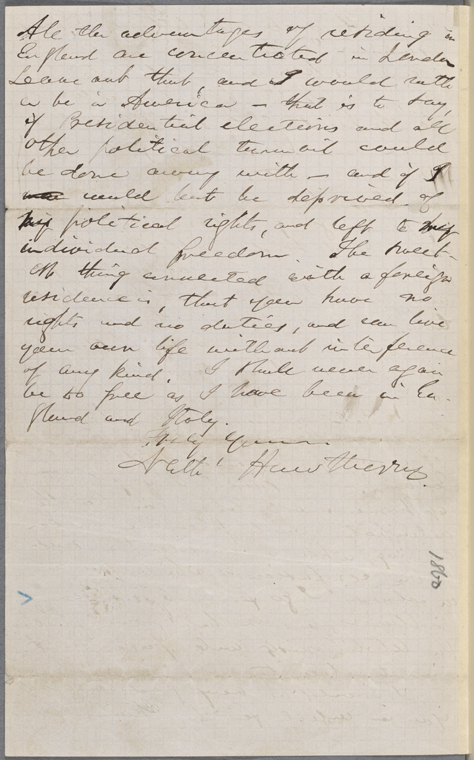 All the advantages of residing in
England are concentrated in London
Leave out that, and I would rath-
er be in America — that is to say,
if Presidential elections and all
other political turmoil could
be done away with — and if I
could but be deprived of
my political rights, and left to my
individual freedom. The sweet-
est thing connected with a foreign
residence is, that you have no
rights and no duties, and can live
your own life without interference
of any kind. I shall never again
be so free as I have been in En-
gland and Italy.
Truly Yours,
Nath' Hawthorne.